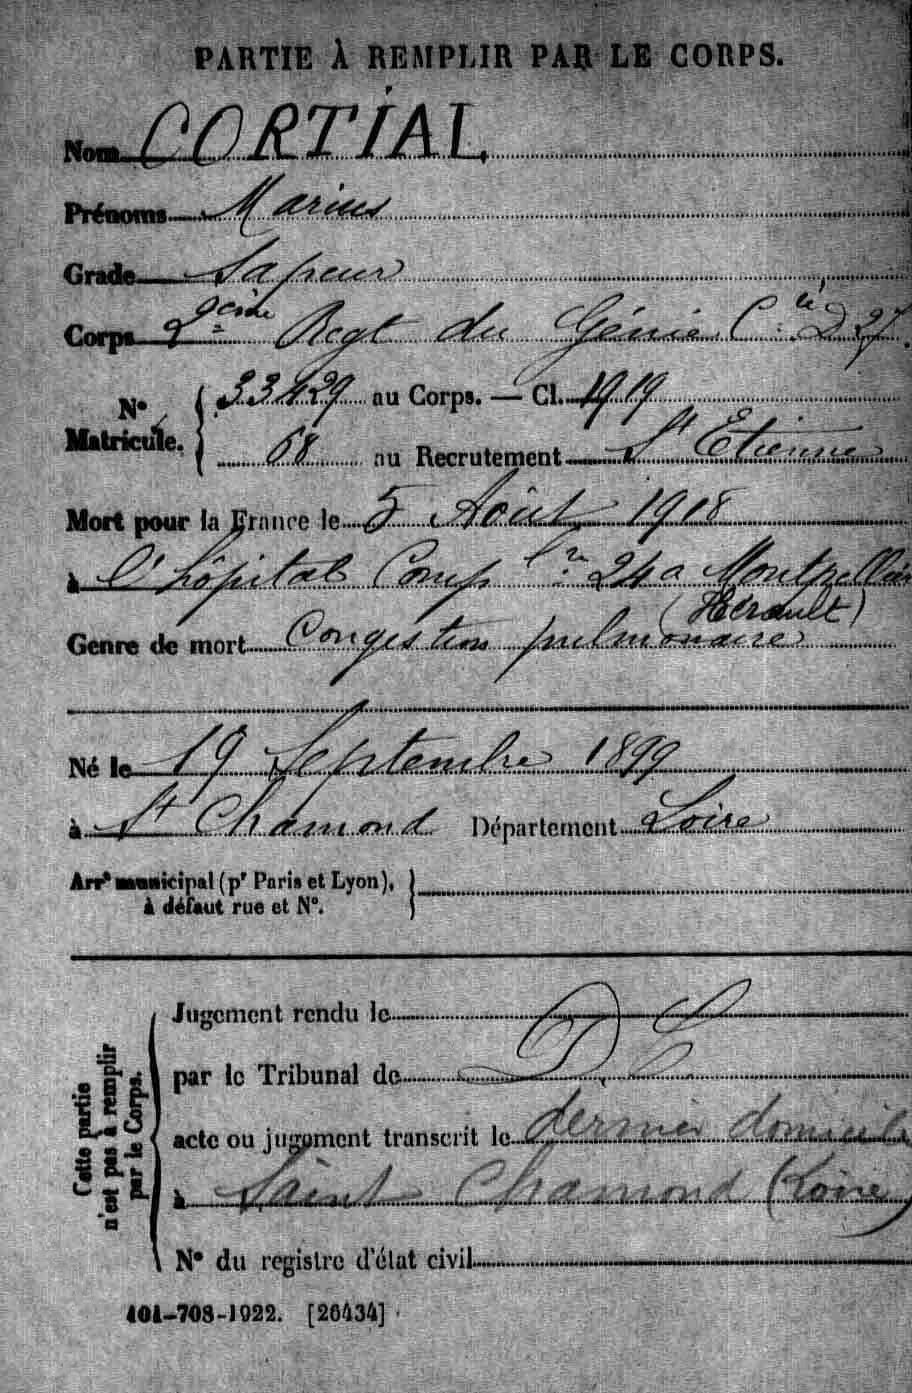 PARTIE À REMPLIR PAR LE CORPS.
Nom CORTIAL
Prénoms Marius
Grade Sapeur
Corps 2ème Regt du Génie Cie D 27
N° Matricule. 33429 au Corps. — Cl. 1919
68 au Recrutement St Etienne
Mort pour la France le 5 Août 1918
à l'hôpital Comp re 24 a Montpellier
(Hérault)
Genre de mort Congestion pulmonaire
Né le 19 Septembre 1899
à St Chamond Département Loire
Arrt municipal (pr Paris et Lyon),
à défaut rue et N°.
Cette partie
n'est pas à remplir
par le Corps.
Jugement rendu le
par le Tribunal de D.C.
acte ou jugement transcrit le dernier domicile
à Saint Chamond (Loire)
N° du registre d'état civil
101-708-1922. [26434]